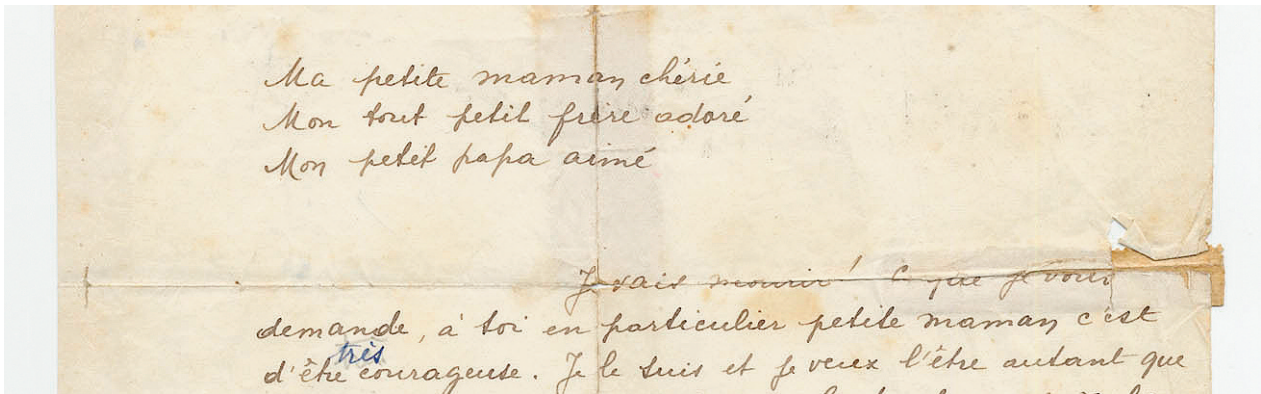 Ma petite maman chérie
Mon tout petit frère adoré
Mon petit papa aimé
Je vais mourir ! Ce que je vous
demande, à toi en particulier petite maman c'est
très
d'être courageuse. Je le suis et je veux l'être autant que